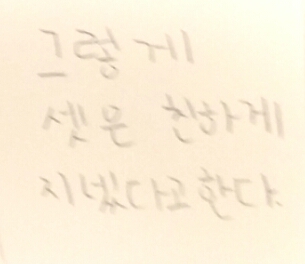 그렇게
셋은 친하게
지냈다고 한다.